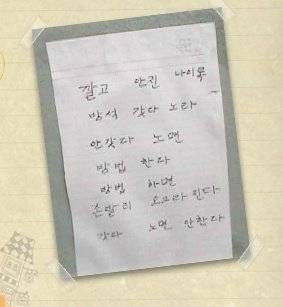 깔고 안진 나이롱
방석 갖다 노라
안갖다 노면
방법 한다
방법 하면
손발리 오그라진다
갖다 노면 안한다